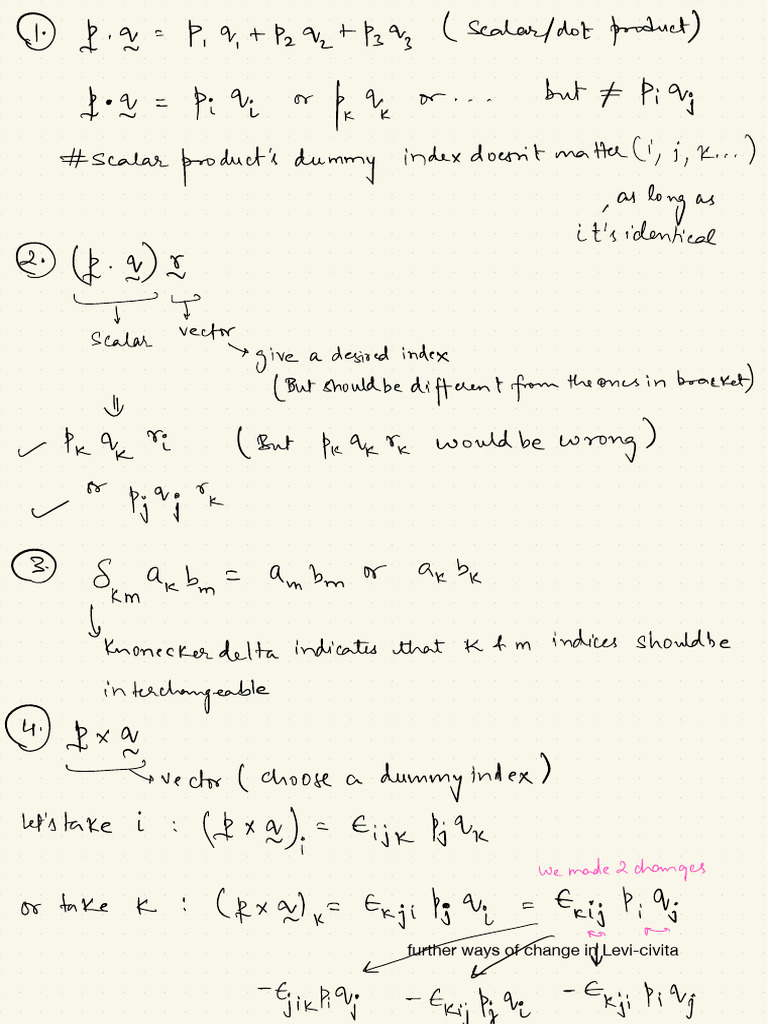 1. p · q = p₁ q₁ + p₂ q₂ + p₃ q₃ (scalar/dot product)
p · q = pᵢ qᵢ or pₖ qₖ or ... but ≠ pᵢ qⱼ
# scalar product's dummy index doesn't matter (i, j, k...)
, as long as
it's identical
2. (p · q) r
scalar vector
give a desired index
(But should be different from the ones in bracket)
⇓
✓ pₖ qₖ rᵢ (But pₖ qₖ rₖ would be wrong)
✓ or pⱼ qⱼ rₖ
3. δₖₘ aₖ bₘ = aₘ bₘ or aₖ bₖ
Kronecker delta indicates that k & m indices should be
interchangeable
4. p × q
vector (choose a dummy index)
let's take i : (p × q)ᵢ = ϵᵢⱼₖ pⱼ qₖ
we made 2 changes
or take k : (p × q)ₖ = ϵₖⱼᵢ pⱼ qᵢ = ϵₖᵢⱼ pᵢ qⱼ
further ways of change in Levi-civita
-ϵⱼᵢₖ pᵢ qⱼ -ϵₖᵢⱼ pⱼ qᵢ -ϵₖⱼᵢ pᵢ qⱼ